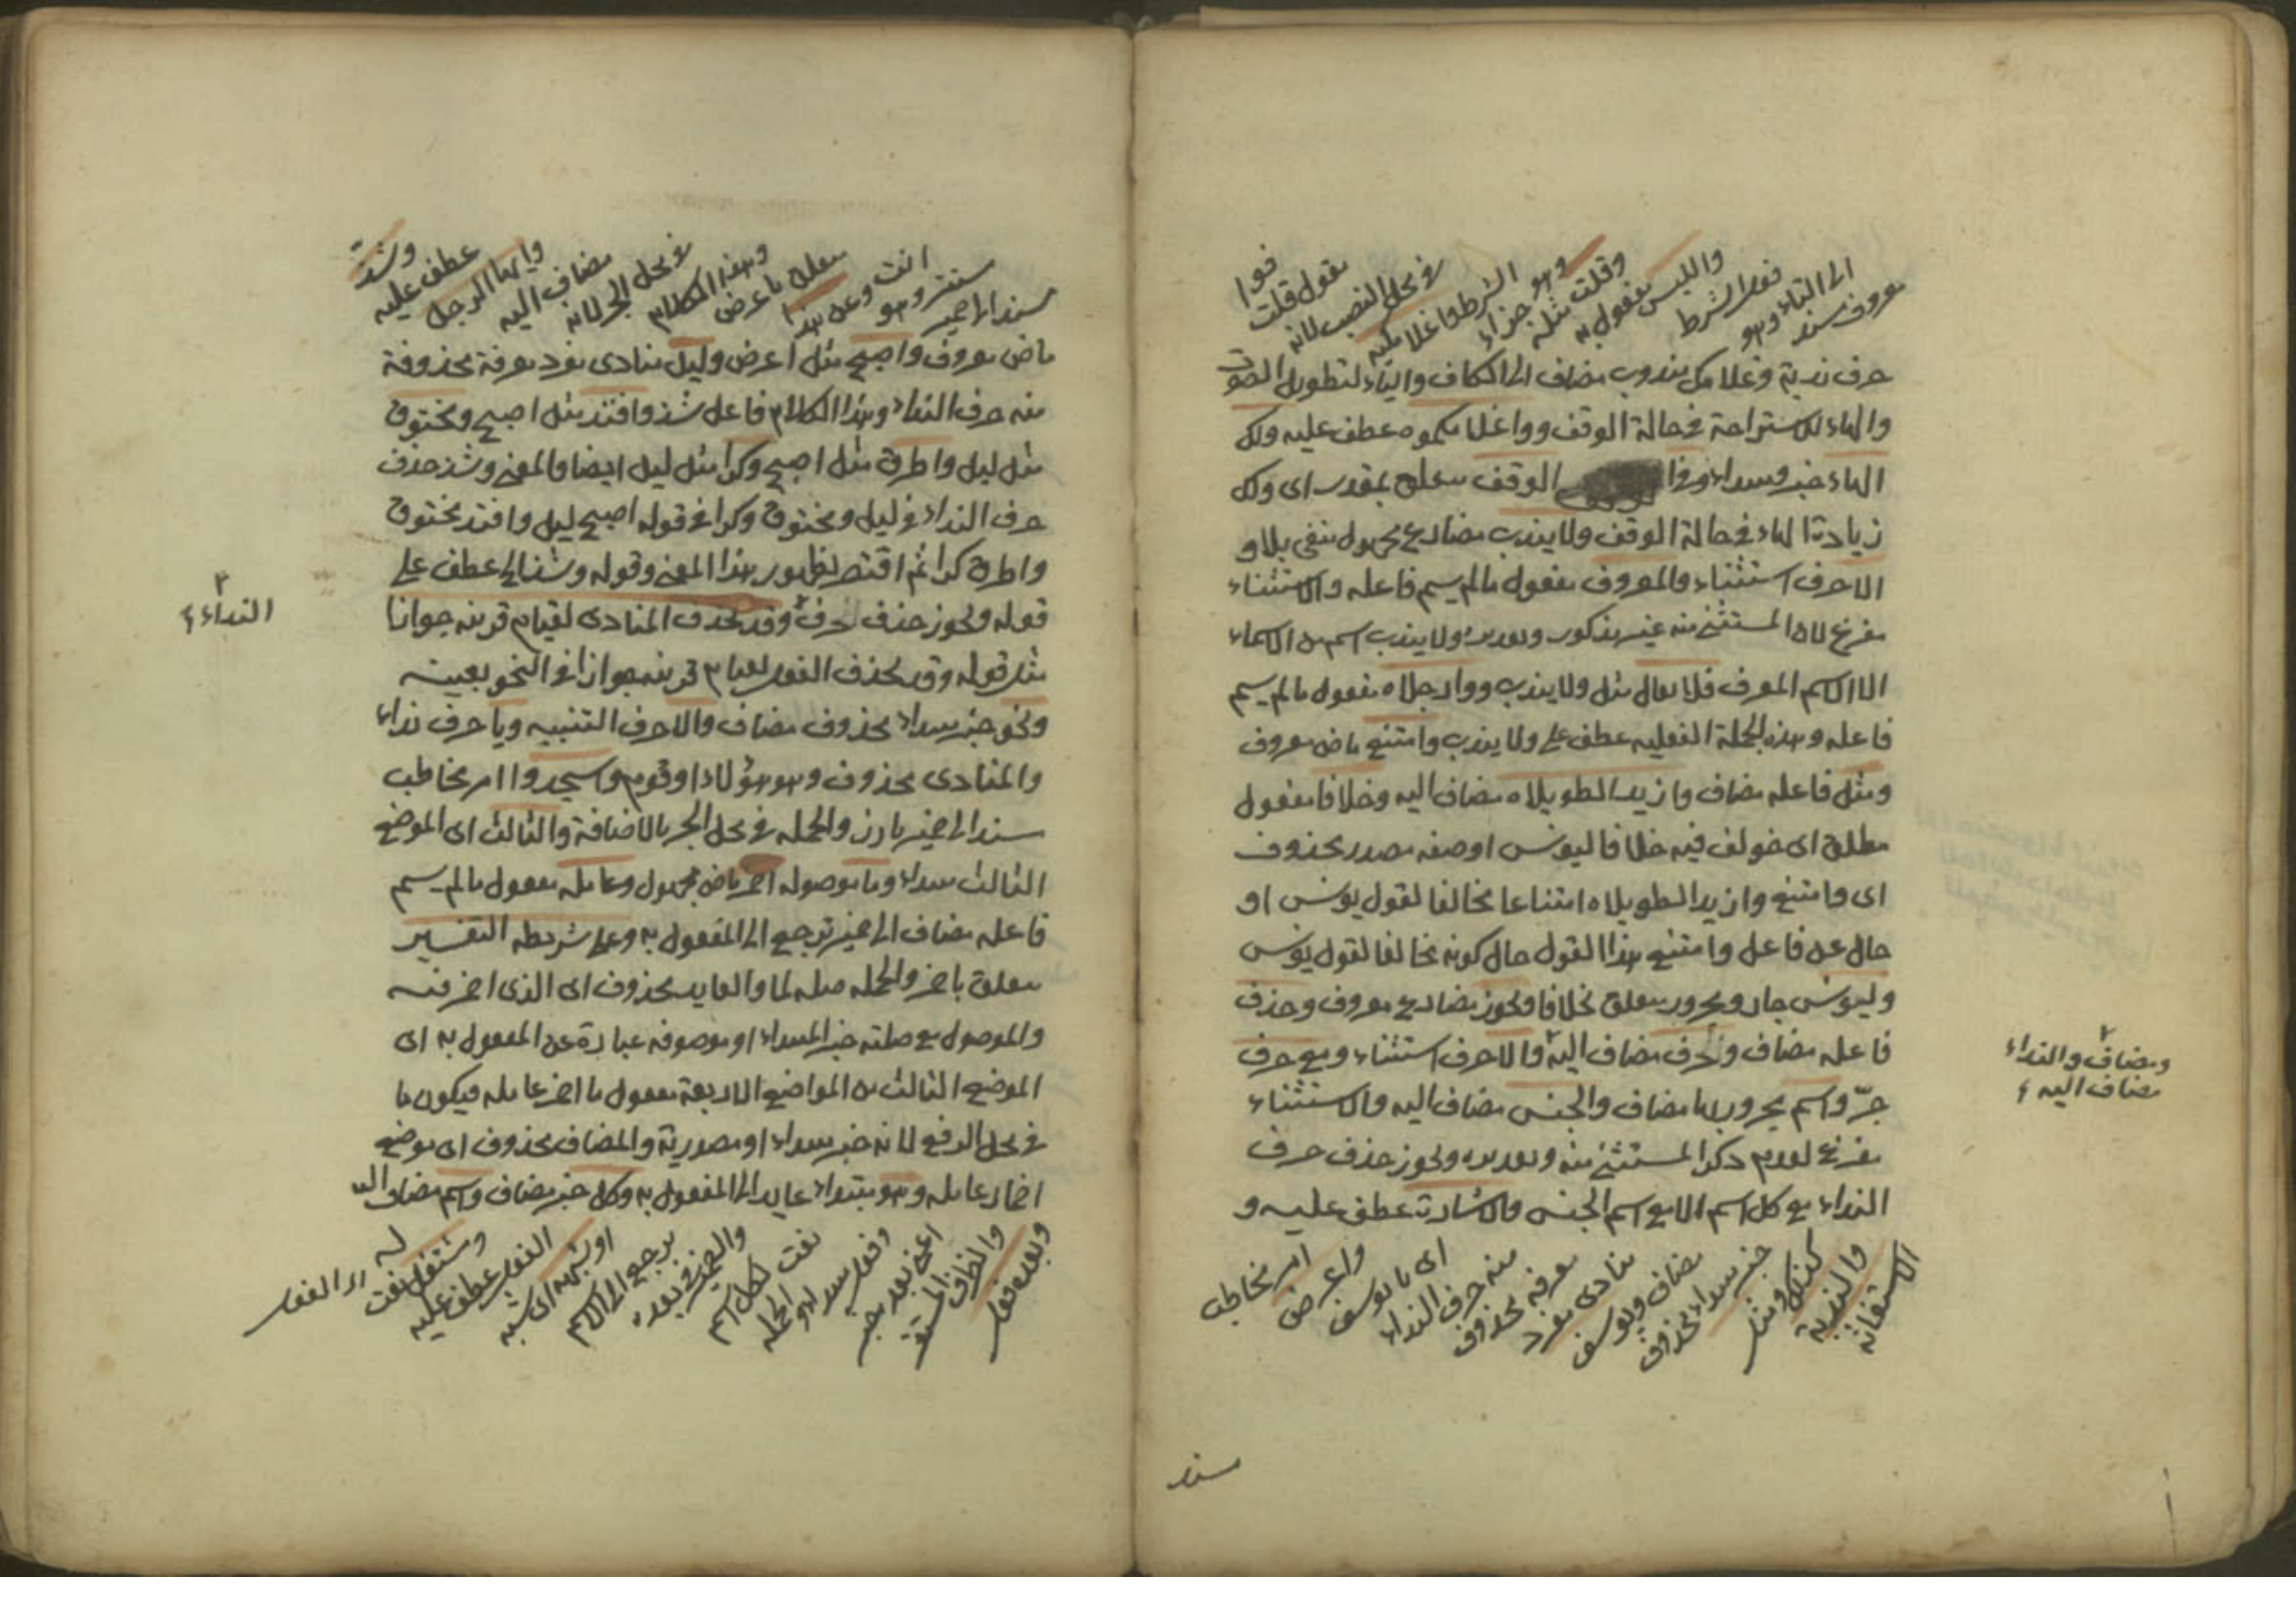 معروف مسند
الى التاء وهو
فعل الشرط
واللبس مفعول به
وقلت مثله
وهو جزاء
الشرط واغلامكيه
في محل النصب لانه
مقول قلت
فوا
حرف ندبة وغلامك مندوب مضاف الى الكاف والياء لتطويل الصوت
والهاء للاستراحة في حالة الوقف وواغلامكموه عطف عليه ولك
الهاء خبر ومبتداء وفي الوقف متعلق بمقدر اى ولك
زيادة الهاء في حالة الوقف ولا يندب مضارع مجهول منفى بلا و
الا حرف استثناء والمعروف مفعول ما لم يسم فاعله والاستثناء
مفرغ لان المستثنى منه غير مذكور وتقديره ولا يندب اسم من الاسماء
الا الاسم المعرف فلا يقال مثل ولا يندب ووارجلاه مفعول ما لم يسم
فاعله وهذه الجملة الفعليه عطف على ولا يندب وامتنع ماض معروف
ومثل فاعله مضاف وازيد الطويلاه مضاف اليه وخلافا مفعول
مطلق اى خولف فيه خلافا ليونس او صفه مصدر محذوف
اى وامتنع وازيد الطويلاه امتناعا مخالفا لقول يونس او
حال عن فاعل وامتنع هذا القول حال كونه مخالفا لقول يونس
وليونس جار ومجرور متعلق بخلافا ويجوز مضارع معروف وحذف
فاعله مضاف وحرف مضاف اليه والا حرف استثناء ومع حرف
جرّ واسم مجرور بها مضاف والجنس مضاف اليه والاستثناء
مفرغ لعدم ذكر المستثنى منه وتقديره ويجوز حذف حرف
النداء مع كل اسم الا مع اسم الجنس والاشارة عطف عليه و
الاستغاثه
والندبة
كذلك ومثل
خبر مبتداء محذوف
مضاف ويوسف
منادى مفرد
معرفه محذوف
منه حرف النداء
اى يا يوسف
واعرض
امر مخاطب
ومضاف والنداء
مضاف اليه
مسند
مسند الى ضمير
مستتر وهو
انت وعن هذا
متعلق باعرض
وهذا الكلام
في محل الجر لانه
مضاف اليه
وايها الرجل
عطف عليه
وشذّ
ماض معروف واصبح مثل اعرض وليل منادى مفرد معرفة محذوفة
منه حرف النداء وهذا الكلام فاعل شذ وافتد مثل اصبح ومخنوق
مثل ليل واطرق مثل اصبح وكرا مثل ليل ايضا والمعنى وشذ حذف
حرف النداء في ليل ومخنوق وكرا في قوله اصبح ليل وافتد مخنوق
واطرق كرا ثم اقتصر لظهور هذا المعنى وقوله وشذ الى عطف على
قوله ويجوز حذف حرف وقد يحذف المنادى لقيام قرينه جوازا
مثل قوله وقد يحذف الفعل لقيام قرينه جوازا في النحو بعينه
ونحو خبر مبتداء محذوف مضاف والا حرف التنبيه ويا حرف نداء
والمنادى محذوف وهو هؤلاء او قوم واسجدوا امر مخاطب
مسند الى ضمير بارز والجمله في محل الجر بالاضافة والثالث اى الموضع
الثالث مبتداء وما موصوله اضمر ماض مجهول وعامله مفعول ما لم يسم
فاعله مضاف الى ضمير ترجع الى المفعول به وعلى شريطه التفسير
متعلق باضمر والجمله صله لما والعايد محذوف اى الذى اضمر فيه
والموصول مع صلته خبر المبتداء او موصوفه عبارة عن المفعول به اى
الموضع الثالث من المواضع الاربعة مفعول ما اضمر عامله فيكون ما
في محل الرفع لانه خبر مبتداء او مصدرية والمضاف محذوف اى موضع
اضمار عامله وهو مبتداء عايد الى المفعول به وكل خبر مضاف واسم مضاف اليه
وبعده فعل
والظرف المستقر
اعنى بعد خبر
وفعل مبتداء والجمله
نعت لكل اسم
والضمير في بعده
يرجع الى الاسم
او شبهه اى شبه
الفعل عطف عليه
ومشتغل نعت
له
النداء